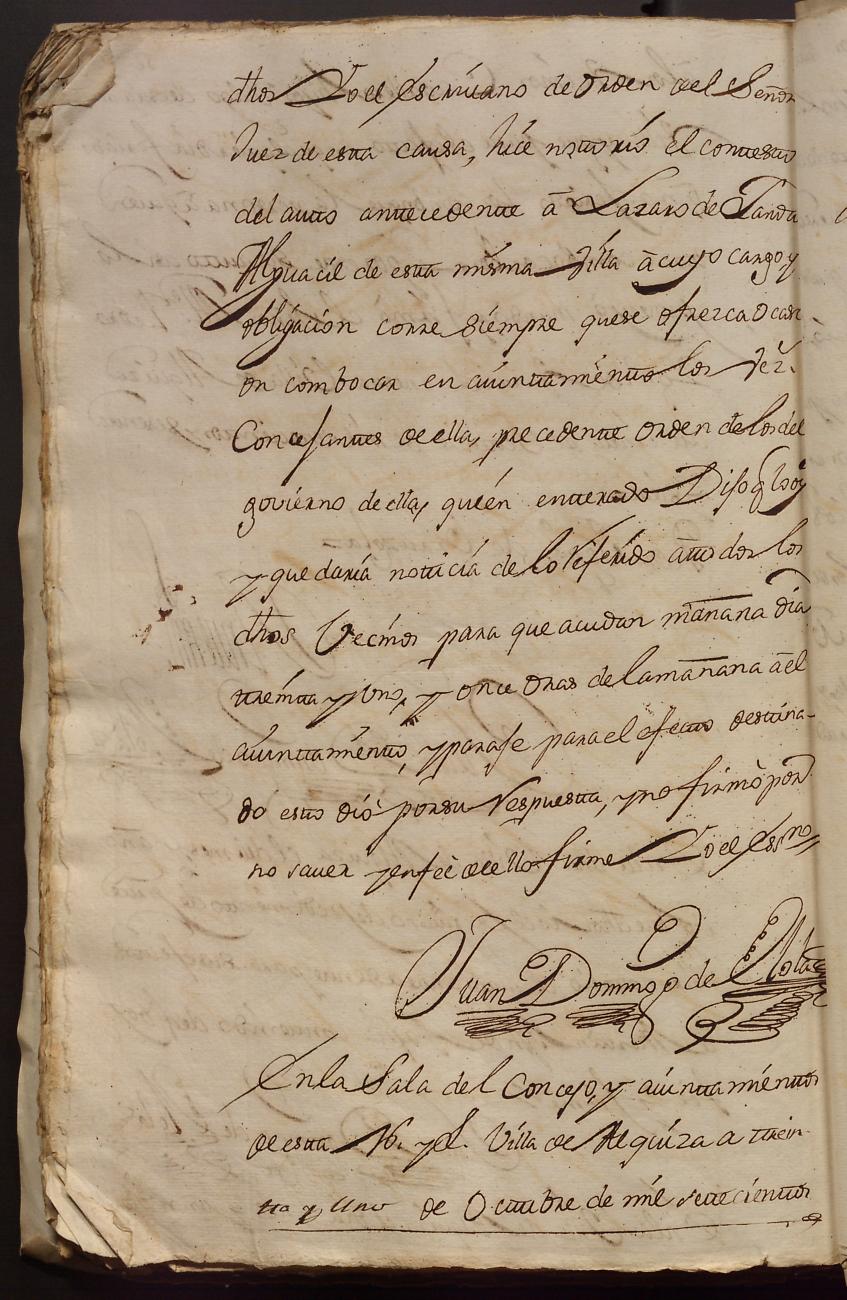 dhos Yo el Escriuano de Orden del Señor
Juez de esta causa, hice notorio El contesto
del auto antecedente â Lazaro de Ganda
Alguacil de esta misma Villa âcuyo cargo y
obligacion corre siempre quese ofrezca Ocasi
on combocar en aiuntamiento los Vez.
Concejantes de ella, precedente Orden de los del
govierno de ella, quien enterado Dijo q lo oy
y que daria noticia de lo Referido atodos los
dhos Vecinos para que acudan mañana dia
treinta y Uno, y once Oras de la mañana âel
aiuntamiento, y paraje para el efecto destina-
do esto dió por su Respuesta, y no firmò por
no saver y enfeè de ello firme Yo el Essno
Juan Domingo de
En la Sala del Concejo, y aiuntamiento
de esta N. y L. Villa de Alquiza a trein-
ta y Uno de Octubre de mil setecientos